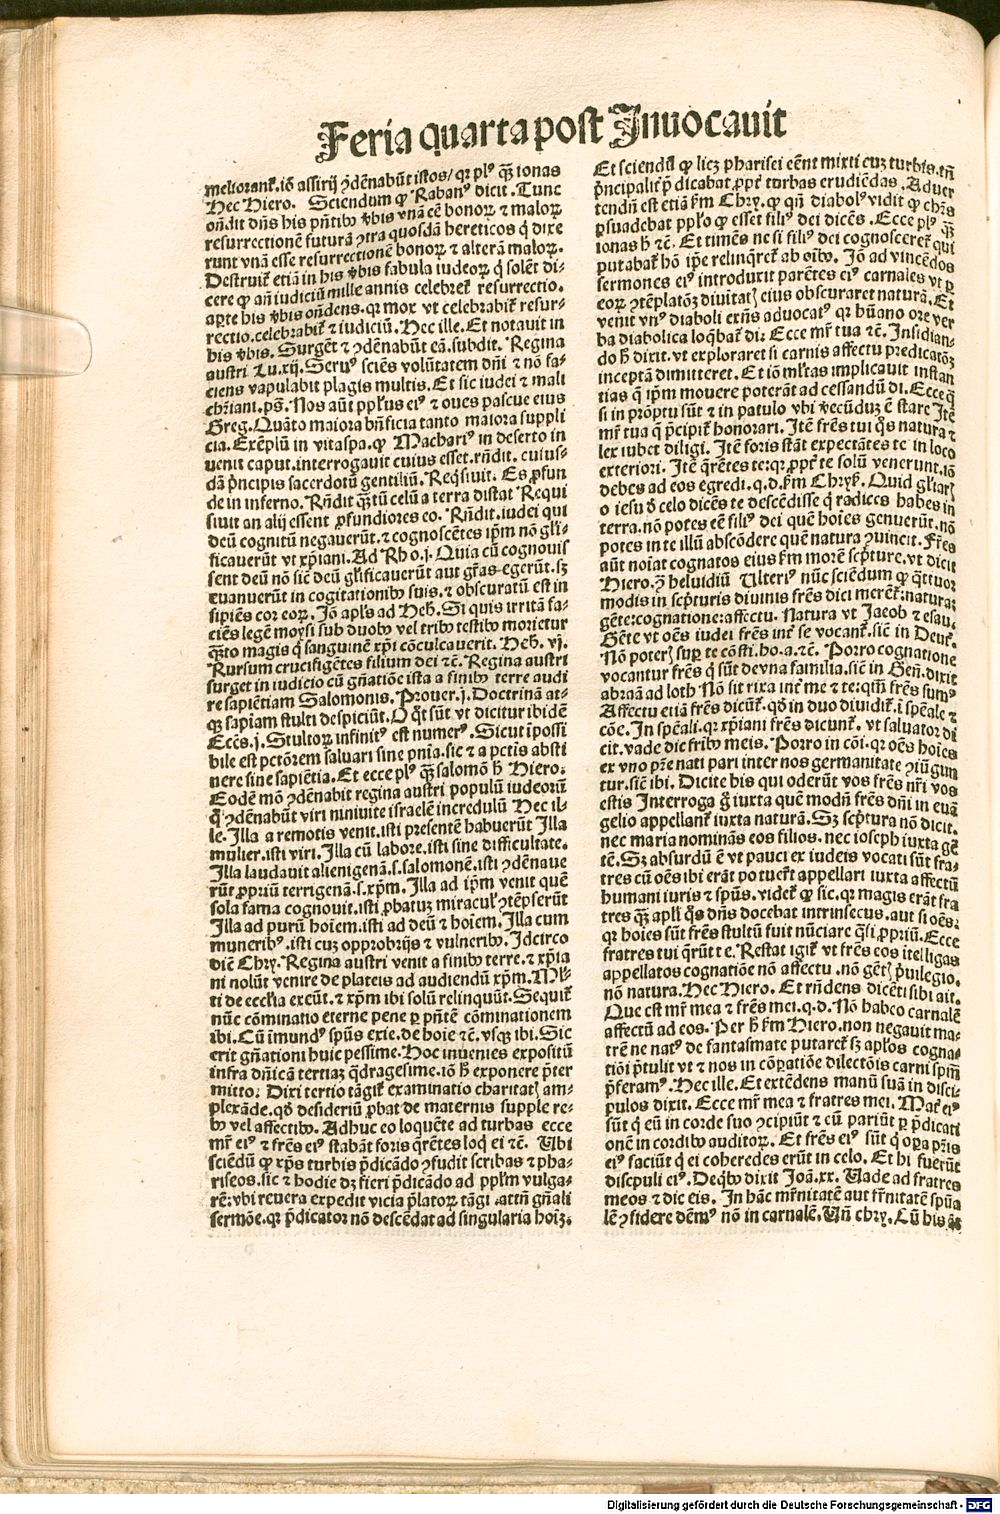 Feria quarta post Inuocauit
meliorant᷑.iō assirij ꝯdēnabūt istos/ qꝛ plꝰ q̄ꝫ ionas
Hec Hiero. Sciendum ꝙ Rabanꝰ dicit. Tunc
on̄dit dn̄s his pn̄tibꝫ v̾bis vnā eē bonoꝝ ⁊ maloꝝ
resurrectionē futurā ꝯtra quosdā hereticos q̇ dixe
runt vnā esse resurrectionē bonoꝝ ⁊ alterā maloꝝ.
Destruit᷑ etiā in his v̾bis fabula iudeoꝝ q̇ solēt di⸗
cere ꝙ an̄ iudiciū mille annis celebret᷑ resurrectio.
aꝑte his v̾bis on̄dens.qꝛ mox vt celebrabit᷑ resur⸗
rectio.celebrabit᷑ ⁊ iudiciū. Hec ille. Et notauit in
his v̾bis. Surgēt ⁊ ꝯdēnabūt eā.subdit. Regina
austri Lu.xij. Seruꝰ sciēs volūtatem dn̄i ⁊ nō fa⸗
ciens vapulabit plagis multis. Et sic iudei ⁊ mali
ch̄iani.pS̄. Nos aūt pplꝰus eiꝰ ⁊ oues pascue eius
Greg. Quāto maiora bn̄ficia tanto maiora suppli
cia. Exēplū in vitaspa.ꝙ Machariꝰ in deserto in
uenit caput.interrogauit cuius esset.rn̄dit. cuius⸗
dā pn̄cipis sacerdotū gentiliū. Reqsiuit. Es ꝓfun
de in inferno. Rn̄dit q̄ꝫtū celū a terra distat Requi
siuit an alij essent ꝓfundiores eo. Rn̄dit.iudei qui
deū cognitū negauerūt.⁊ cognoscētes ip̄m nō gl̄i⸗
ficauerūt vt xp̄iani. Ad Rho.j. Quia cū cognouis
sent deū nō sic̄ deū gl̄ificauerūt aut gr̄as egerūt.sꝫ
euanuerūt in cogitationibꝫ suis.⁊ obscuratū est in
sipiēs cor eoꝝ. Jō apl̄s ad Heb. Si quis irritā fa⸗
ciēs legē moysi sub duobꝫ vel tribꝫ testibꝫ morietur
q̄ꝫto magis q̇ sanguinē xp̄i cōculcauerit. Heb. vj.
Rursum crucifigētes filium dei ⁊c̄. Regina austri
surget in iudicio cū gn̄atiōe ista a finibꝫ terre audi
re sapiētiam Salomonis. Prouer.j. Doctrinā at⸗
qꝫ sapiam stulti despiciūt. O q̇t sūt vt dicitur ibidē
Ecēs.j. Stultoꝝ infinitꝰ est numerꝰ. Sicut ipossi
bile est pctōrem saluari sine pnīa.sic ⁊ a pctis absti
nere sine sapiētia. Et ecce plꝰ q̄ꝫ salomō h̄ Hiero.
Eodē mō ꝯdēnabit regina austri populū iudeorū
q̇ ꝯdēnabūt viri niniuite israelē incredulū Hec il⸗
le. Illa a remotis venit.isti presentē habuerūt Illa
mulier.isti viri. Illa cū labore.isti sine difficultate.
Illa laudauit alienigenā.s.salomonē.isti ꝯdēnaue
rūt ꝓpriū terrigenā.s.xp̄m. Illa ad ip̄m venit quē
sola fama cognouit.isti ꝓbatuꝫ miraculꝭ ꝯtēpserūt
Illa ad purū hoīem.isti ad deū ⁊ hoīem. Illa cum
muneribꝰ.isti cuꝫ opprobrijs ⁊ vulneribꝫ. Idcirco
diē Chry. Regina austri venit a finibꝫ terre.⁊ xp̄ia
ni nolūt venire de plateis ad audiendū xp̄m. Ml̄⸗
ti de eccl̄ia exeūt.⁊ xp̄m ibi solū relinquūt. Sequit᷑
nūc cōminatio eterne pene ꝑ pn̄tē cōminationem
ibi. Cū īmundꝰ spūs exie.de hoīe ⁊c̄. vsqꝫ ibi. Sic
erit gn̄ationi huic pessime. Hoc inuenies expositū
infra dn̄icā tertiaꝫ q̄dragesime.iō h̄ exponere p̄ter
mitto. Dixi tertio tāgit᷑ examinatio charitatꝭ am⸗
plexāde.qd̄ desideriū ꝓbat de maternis supple re⸗
bꝫ vel affectibꝫ. Adhuc eo loquēte ad turbas ecce
mr̄ eiꝰ ⁊ fr̄es eiꝰ stabāt foris q̄rētes loq̇ ei ⁊c̄. Ubi
sciēdū ꝙ xp̄s turbis p̄dicādo ꝯfudit scribas ⁊ pha⸗
riseos.sic ⁊ hodie dꝫ fieri p̄dicādo ad ppl̄m vulga⸗
rē:vbi reuera expedit vicia p̄latoꝝ tāgi .attn̄ gn̄ali
sermōe.qꝛ p̄dicator nō descēdat ad singularia hoīꝫ.
Et sciendū ꝙ licꝫ pharisei eēnt mixti cuꝫ turbis.tn̄
p̄ncipalit᷑ p̄dicabat ꝓpt᷑ turbas erudiēdas. Aduer
tendū est etiā ẜm Chry. ꝙ qn̄ diabolꝰ vidit ꝙ chr̄s
ꝑsuadebat pplo ꝙ esset filiꝰ dei dicēs. Ecce plꝰ q̄ꝫ
ionas h̄ ⁊c̄. Et timēs ne si filiꝰ dei cognosceret᷑ qui
putabat᷑ hō ip̄e relinq̄ret᷑ ab oībꝫ. Jō ad vincēdos
sermones eiꝰ introduxit parētes eiꝰ carnales vt ꝑ
eoꝝ ꝯtēplatōꝫ diuitatꝭ eius obscuraret naturā. Et
venit vnꝰ diaboli exn̄s aduocatꝰ qꝛ hūano ore ver
ba diabolica loq̄bat᷑ di: Ecce mr̄ tua ⁊c̄. Insidian⸗
do h̄ dixit.vt exploraret si carnis affectu predicatōꝫ
inceptā dimitteret. Et iō ml̄tas implicauit instan
tias q̄ ip̄m mouere poterāt ad cessandū di. Ecce q̄
si in prōptu sūt ⁊ in patulo vbi v̄ecūduꝫ ē stare Itē
mr̄ tua q̄ p̄cipit᷑ honorari. Itē fr̄es tui q̇s natura ⁊
lex iubet diligi. Itē foris stāt expectātes te in loco
exteriori. Itē q̄rētes te:qꝛ ꝓpt᷑ te solū venerunt.iō
debes ad eos egredi.q.d.ẜm Chryẜ. Quid gl̄iarꝭ
o iesu d̾ celo dicēs te descēdisse q̇ radices habes in
terra.nō potes eē filiꝰ dei quē hoīes genuerūt.nō
potes in te illū abscōdere quē natura ꝯuincit. Fr̄es
aūt noīat cognatos eius ẜm morē scpt̄ure.vt dicit
Hiero.ꝯ heluidiū Ulteriꝰ nūc sciendum ꝙ q̄ttuor
modis in scpt̄uris diuinis fr̄es dici merēt᷑:natura:
gēte:cognatione:affectu. Natura vt Jacob ⁊ esau.
Gēte vt oēs iudei fr̄es int᷑ se vocant᷑.sic̄ in Deut᷑.
Nō poterꝭ suꝑ te cōsti.ho.a.⁊c̄. Porro cognatione
vocantur fr̄es q̇ sūt de vna familia.sic̄ in Gen̄.dixit
abraā ad loth Nō sit rixa int᷑ me ⁊ te:qm̄ fr̄es sumꝰ
Affectu etiā fr̄es dicūt᷑.qd̄ in duo diuidit᷑.ī spēale ⁊
cōe. In spēali.qꝛ xp̄iani fr̄es dicunt᷑. vt saluator di
cit.vade dic fr̄ibꝫ meis. Porro in cōi.qꝛ oēs hoīes
ex vno pr̄e nati pari inter nos germanitate ꝯiūgun
tur.sic̄ ibi. Dicite his qui oderūt vos fr̄es nr̄i vos
estis Interroga g̊ iuxta quē modū fr̄es dn̄i in euā
gelio appellant᷑ iuxta naturā. Sꝫ scpt̄ura nō dicit.
nec maria nominās eos filios.nec ioseph iuxta gē
tē. Sꝫ absurdū ē vt pauci ex iudeis vocati sūt fra⸗
tres cū oēs ibi erāt potuer̄t appellari iuxta affectū
humani iuris ⁊ spūs.videt᷑ ꝙ sic.qꝛ magis erāt fra
tres q̄ꝫ apl̄i q̇s dn̄s docebat intrinsecus.aut si oēs:
qꝛ hoīes sūt fr̄es stultū fuit nūciare q̄si ꝓpriū. Ecce
fratres tui q̄rūt te. Restat igit᷑ vt fr̄es eos itelligas
appellatos cognatiōe nō affectu.nō gētꝭ p̄uilegio.
nō natura. Hec Hiero. Et rn̄dens dicēti sibi ait.
Que est mr̄ mea ⁊ fr̄es mei.q.d. Nō habeo carnalē
affectū ad eos. Per h̄ ẜm Hiero.non negauit ma⸗
trē ne natꝰ de fantasmate putaret᷑ sꝫ apl̄os cogna⸗
tiōi p̄tulit vt ⁊ nos in cōꝑatiōe dilectōis carni spm̄
p̄feramꝰ. Hec ille. Et extēdens manū suā in disci⸗
pulos dixit. Ecce mr̄ mea ⁊ fratres mei. Mat᷑ eiꝰ
sūt q̇ eū in corde suo ꝯcipiūt ⁊ eū pariūt ꝑ p̄dicati
onē in cordibꝫ auditoꝝ. Et fr̄es eiꝰ sūt q̇ oꝑa pr̄is
eiꝰ faciūt q̇ ei coheredes erūt in celo. Et hi fuerūt
discpuli eiꝰ. Deqbꝫ dixit Joā.xx. Uade ad fratres
meos ⁊ dic eis. In hāc mr̄nitatē aut fr̄nitatē spūa
lē ꝯfidere dēmꝰ nō in carnalē. Un̄ chry. Cū his
Digitalisierung gefördert durch die Deutsche Forschungsgemeinschaft - DFG